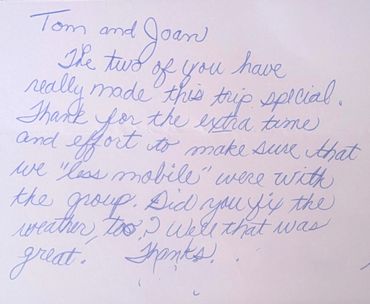 Tom and Joan
The two of you have
really made this trip special.
Thank for the extra time
and effort to make sure that
we "less mobile" were with
the group. Did you fix the
weather, too? Well that was
great. Thanks.